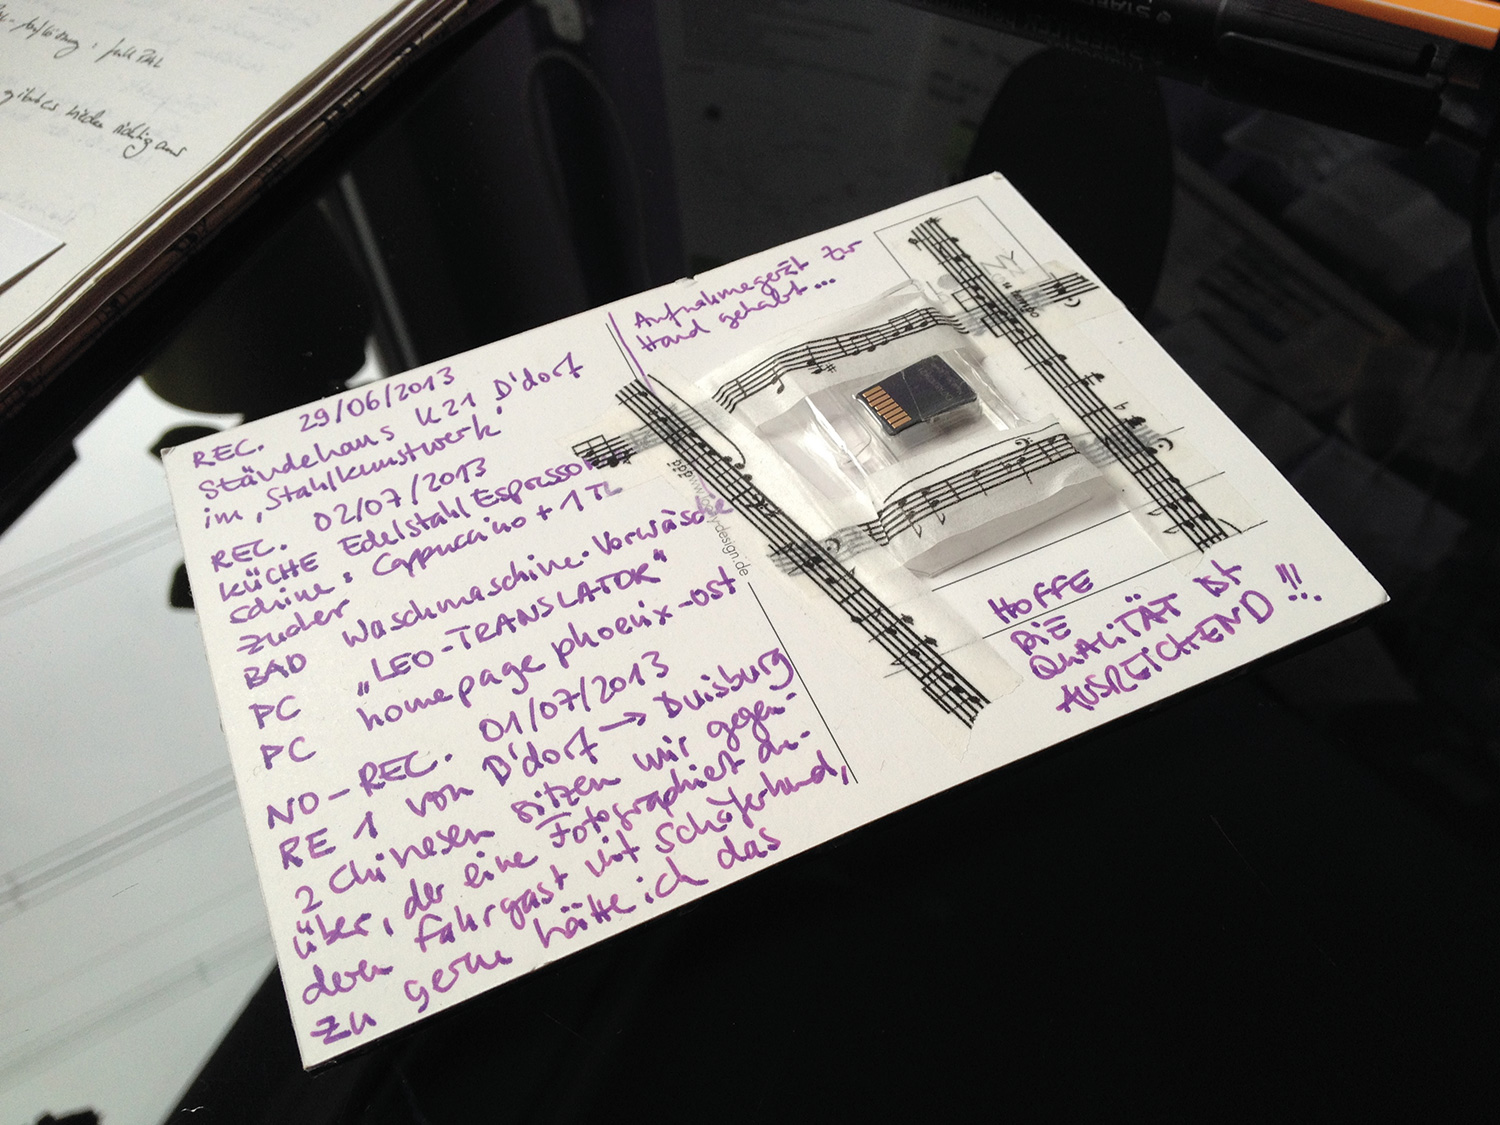 REC. 29/06/2013
Ständehaus K21 D'dorf
im ,Stahlkunstwerk'
REC. 02/07/2013
KÜCHE Edelstahl Espresso
schine: Cappuccino + 1 TL
zucker
BAD Waschmaschine-Vorwäsche
PC „LEO-TRANSLATOR"
PC homepage phoenix-ost
NO-REC. 01/07/2013
RE 1 von D'dorf → Duisburg
2 Chinesen sitzen mir gegen-
über, der eine fotographiert an-
deren Fahrgast mit Schäferhund,
zu gerne hätte ich das
Aufnahmegerät zur
Hand gehabt...
HOFFE
DIE
QUALITÄT IST
AUSREICHEND!!!
-design.de
NY
full PAL
gibt es wieder richtig